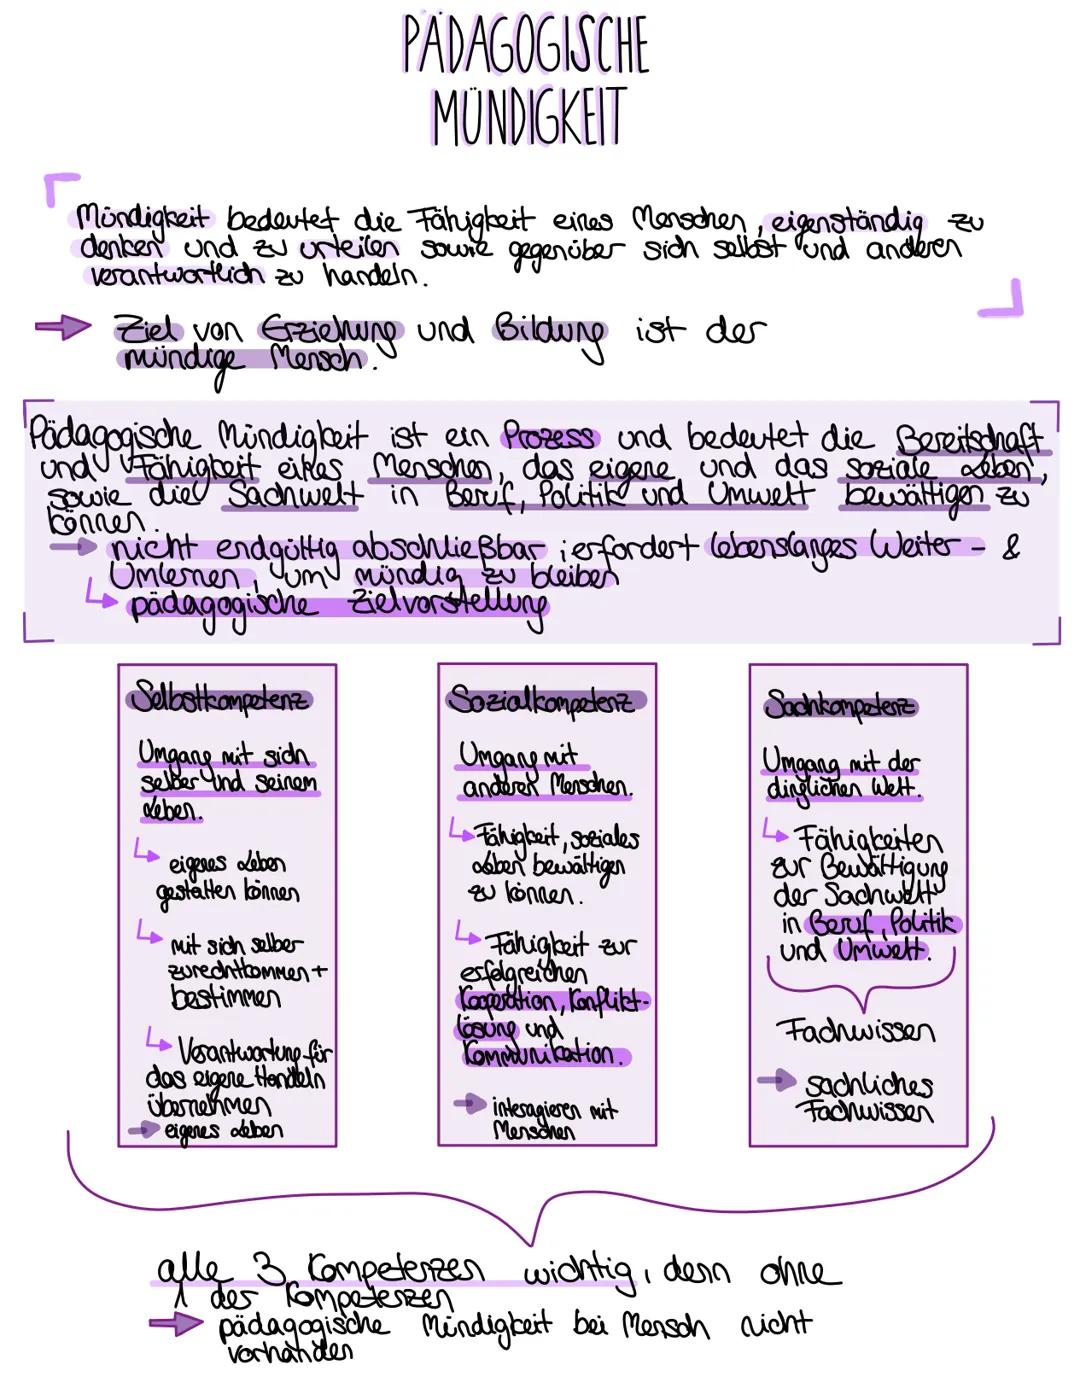 PÄDAGOGISCHE
MÜNDIGKEIT
Mündigkeit bedeutet die Fähigkeit eines Menschen, eigenständig zu
denken und zu urteilen sowie gegenüber sich selbst und anderen
verantwortlich zu handeln.
Ziel von Erziehung und Bildung ist der
mündige Mensch.
Pädagogische Mündigkeit ist ein Prozess und bedeutet die Bereitschaft
und Fähigkeit eines Menschen, das eigene und das soziale Leben,
sowie die Sachwelt in Beruf, Politik und Umwelt bewältigen zu
können.
nicht endgültig abschließbar; erfordert lebenslanges Weiter- &
Umlernen, um mündig zu bleiben
pädagogische Zielvorstellung
Selbstkompetenz
Umgang mit sich
selber und seinem
Leben.
eigenes Leben
gestalten können
mit sich selber
zurechtkommen +
bestimmen
Verantwortung für
das eigene Handeln
übernehmen
eigenes Leben
Sozialkompetenz
Umgang mit
anderen Menschen.
Fähigkeit, soziales
Leben bewältigen
zu können.
Fähigkeit zur
erfolgreichen
Kooperation, Konflikt-
lösung und
Kommunikation.
interagieren mit
Menschen
Sachkompetenz
Umgang mit der
dinglichen Welt.
Fähigkeiten
zur Bewältigung
der Sachwelt
in Beruf, Politik
und Umwelt.
Fachwissen
sachliches
Fachwissen
alle 3 Kompetenzen wichtig, denn ohne
1 der Kompetenzen
pädagogische Mündigkeit bei Mensch nicht
vorhanden